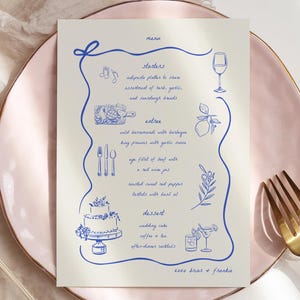 menu
starters
antipasto platter to share
assortment of herb, garlic,
and sourdough breads
entree
wild barramundi with
king prawns with garlic sauce
eye fillet of beef with
a red wine jus
roasted sweet red pepper
tartlets with basil oil
dessert
wedding cake
coffee + tea
after-dinner cocktails
frankie